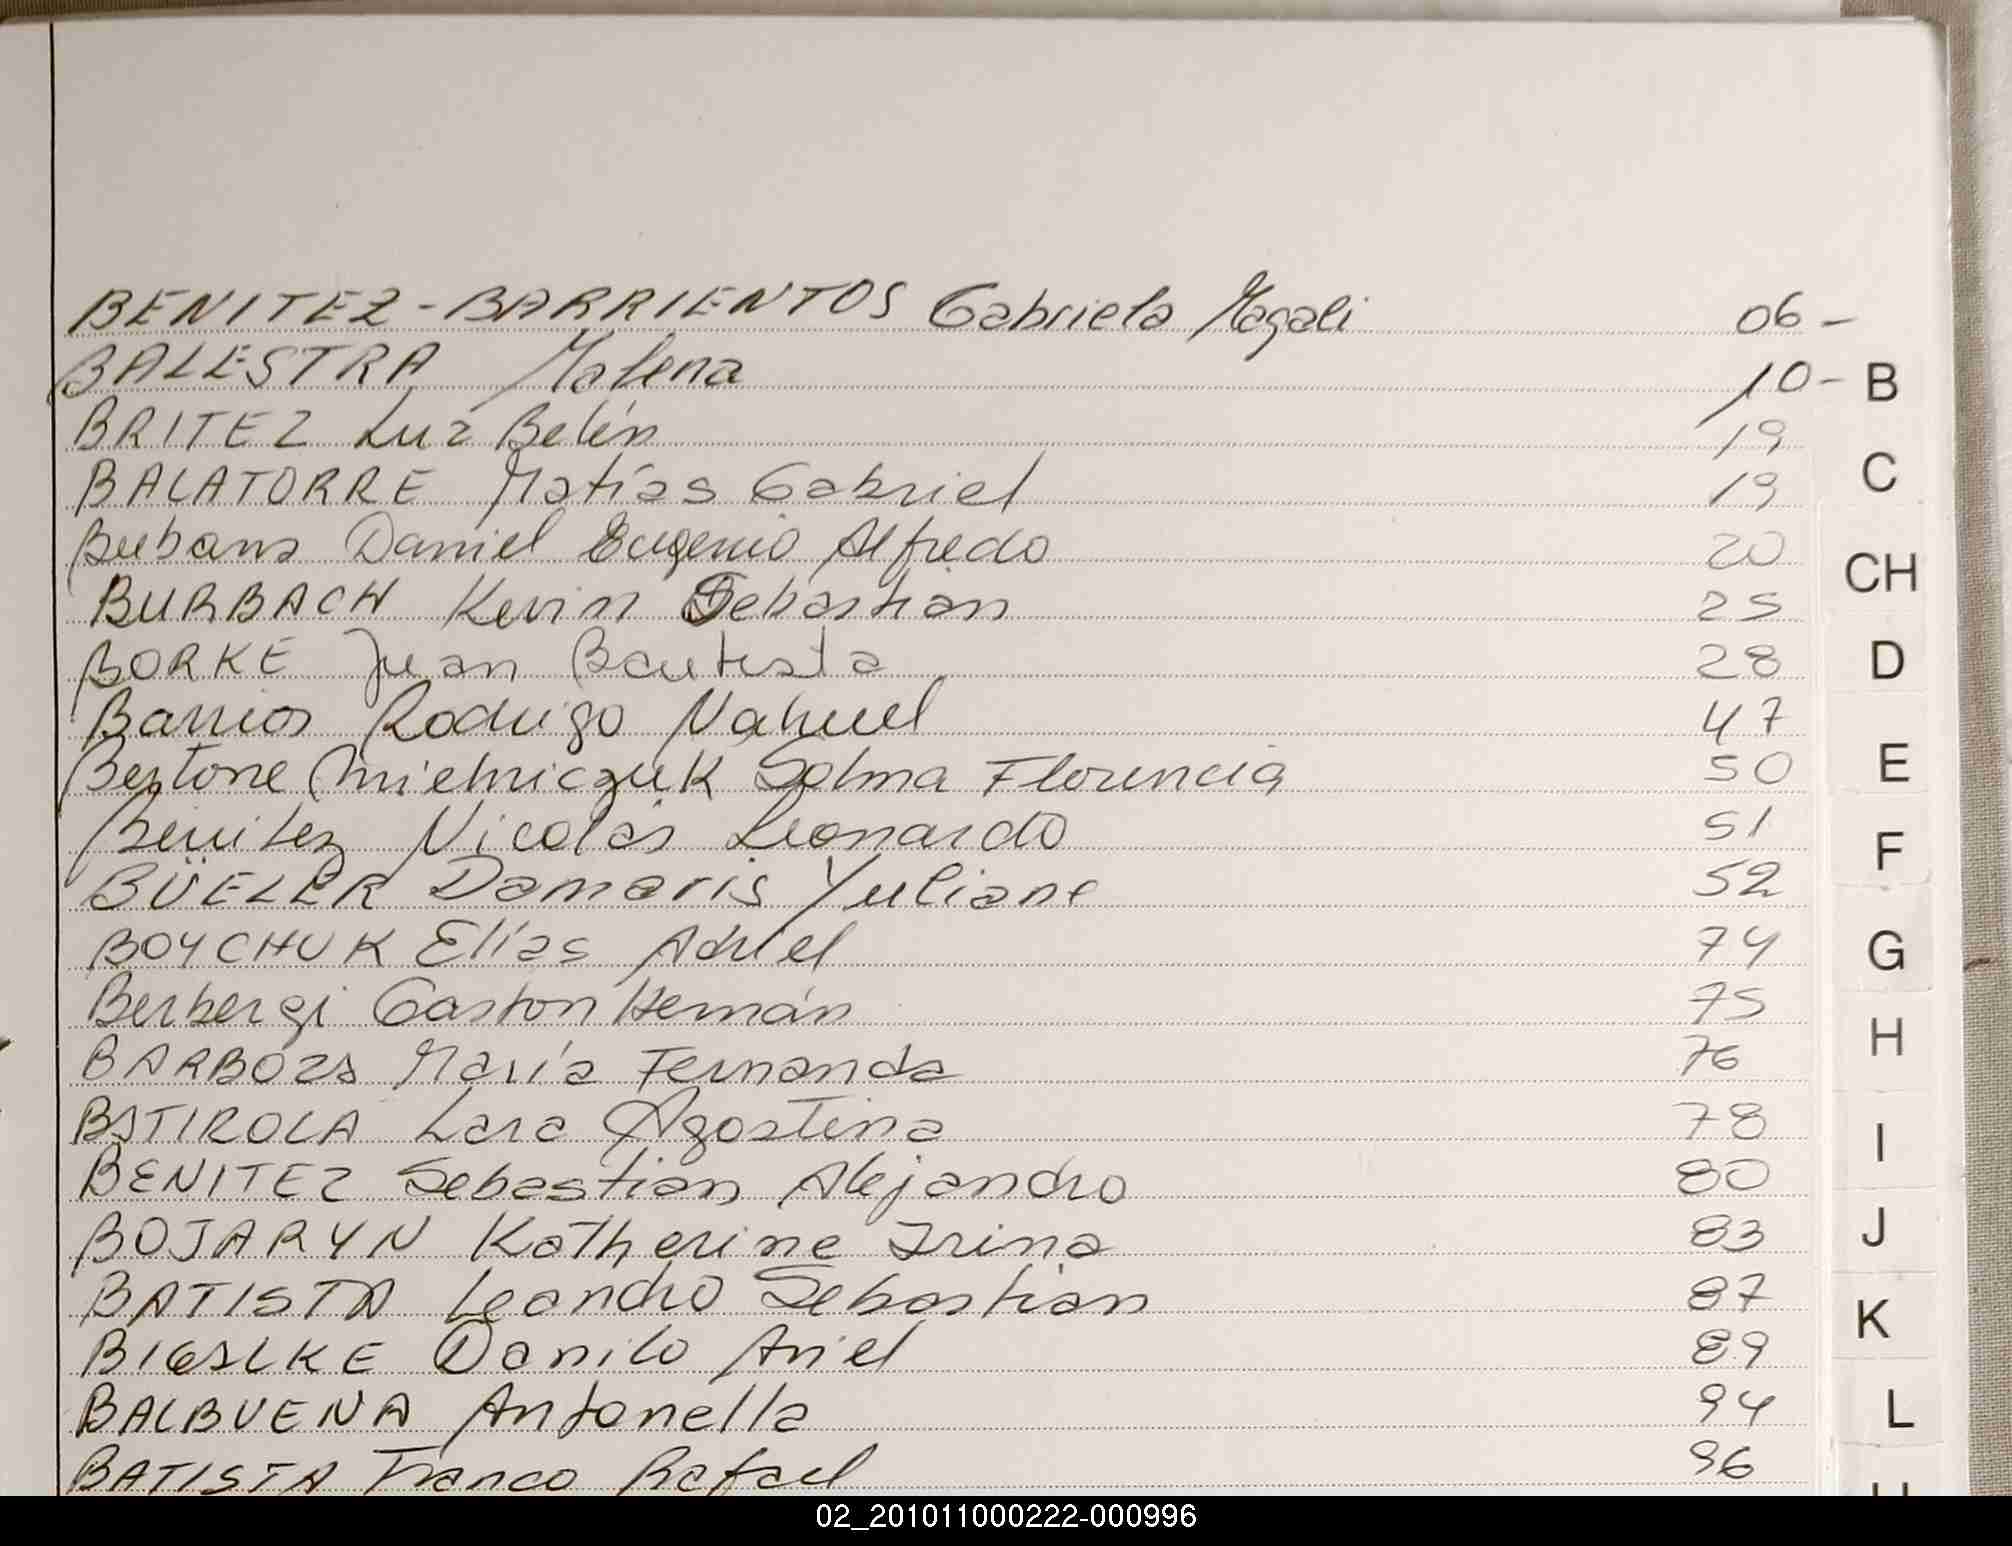 BENITEZ-BARRIENTOS Gabriela Magali 06 -
BALESTRA Malena 10 -
BRITEZ Luz Belén 19
BALATORRE Matías Gabriel 19
Bubans Daniel Eugenio Alfredo 20
BURBACH Kevin Sebastian 25
BORKE Juan Bautista 28
Barrios Rodrigo Nahuel 47
Bertone Mielniczuk Solma Florencia 50
Benitez Nicolás Leonardo 51
BÜELER Damaris Yuliane 52
BOYCHUK Elías Adriel 74
Berbergi Gaston Hernán 75
BARBOZA María Fernanda 76
BATIROLA Lara Agostina 78
BENITEZ Sebastian Alejandro 80
BOJARYN Katherine Irina 83
BATISTA Leandro Sebastian 87
Danilo Ariel 89
BALBUENA Antonella 94
BATISTA Franco Rafael 96
B
C
CH
D
E
F
G
H
I
J
K
L
02_201011000222-000996